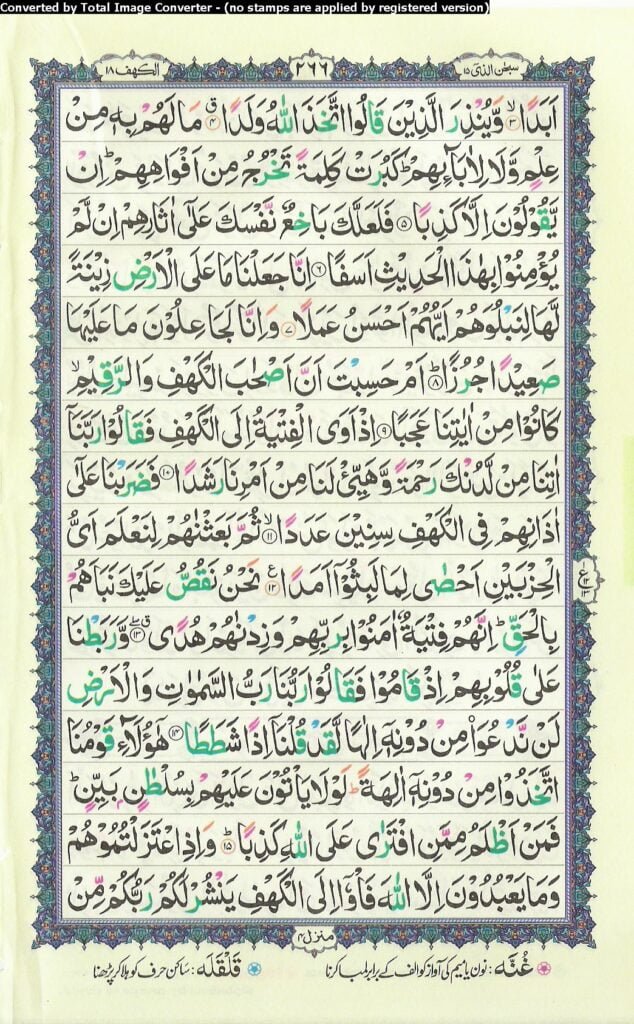 Converted by Total Image Converter - (no stamps are applied by registered version)
سبحٰن الذی ١٥
٢٦٦
الکهف ١٨
اَبَدًا ۙ﴿٣﴾ وَّیُنْذِرَ الَّذِیْنَ قَالُوا اتَّخَذَ اللّٰهُ وَلَدًا ۗ﴿٤﴾ مَا لَهُمْ بِهٖ مِنْ
عِلْمٍ وَّلَا لِاٰبَآئِهِمْ ؕ كَبُرَتْ كَلِمَةً تَخْرُجُ مِنْ اَفْوَاهِهِمْ ؕ اِنْ
یَّقُوْلُوْنَ اِلَّا كَذِبًا ﴿٥﴾ فَلَعَلَّكَ بَاخِعٌ نَّفْسَكَ عَلٰۤی اٰثَارِهِمْ اِنْ لَّمْ
یُؤْمِنُوْا بِهٰذَا الْحَدِیْثِ اَسَفًا ﴿٦﴾ اِنَّا جَعَلْنَا مَا عَلَی الْاَرْضِ زِیْنَةً
لَّهَا لِنَبْلُوَهُمْ اَیُّهُمْ اَحْسَنُ عَمَلًا ﴿٧﴾ وَاِنَّا لَجَاعِلُوْنَ مَا عَلَیْهَا
صَعِیْدًا جُرُزًا ؕ﴿٨﴾ اَمْ حَسِبْتَ اَنَّ اَصْحٰبَ الْكَهْفِ وَالرَّقِیْمِ ۙ
كَانُوْا مِنْ اٰیٰتِنَا عَجَبًا ﴿٩﴾ اِذْ اَوَی الْفِتْیَةُ اِلَی الْكَهْفِ فَقَالُوْا رَبَّنَاۤ
اٰتِنَا مِنْ لَّدُنْكَ رَحْمَةً وَّهَیِّئْ لَنَا مِنْ اَمْرِنَا رَشَدًا ﴿١٠﴾ فَضَرَبْنَا عَلٰۤی
اٰذَانِهِمْ فِی الْكَهْفِ سِنِیْنَ عَدَدًا ۙ﴿١١﴾ ثُمَّ بَعَثْنٰهُمْ لِنَعْلَمَ اَیُّ
الْحِزْبَیْنِ اَحْصٰی لِمَا لَبِثُوْۤا اَمَدًا ﴿١٢﴾ نَحْنُ نَقُصُّ عَلَیْكَ نَبَاَهُمْ
بِالْحَقِّ ؕ اِنَّهُمْ فِتْیَةٌ اٰمَنُوْا بِرَبِّهِمْ وَزِدْنٰهُمْ هُدًی ﴿١٣﴾ وَّرَبَطْنَا
عَلٰی قُلُوْبِهِمْ اِذْ قَامُوْا فَقَالُوْا رَبُّنَا رَبُّ السَّمٰوٰتِ وَالْاَرْضِ
لَنْ نَّدْعُوَا۠ مِنْ دُوْنِهٖۤ اِلٰهًا لَّقَدْ قُلْنَاۤ اِذًا شَطَطًا ﴿١٤﴾ هٰۤؤُلَآءِ قَوْمُنَا
اتَّخَذُوْا مِنْ دُوْنِهٖۤ اٰلِهَةً ؕ لَوْلَا یَاْتُوْنَ عَلَیْهِمْ بِسُلْطٰنٍۭ بَیِّنٍ ؕ
فَمَنْ اَظْلَمُ مِمَّنِ افْتَرٰی عَلَی اللّٰهِ كَذِبًا ؕ﴿١٥﴾ وَاِذِ اعْتَزَلْتُمُوْهُمْ
وَمَا یَعْبُدُوْنَ اِلَّا اللّٰهَ فَاْوٗۤا اِلَی الْكَهْفِ یَنْشُرْ لَكُمْ رَبُّكُمْ مِّنْ
منزل ٤
غُنَّه: نون یا میم کی آواز کو الف کے برابر لمبا کرنا قَلْقَلَه: ساکن حرف کو ہلا کر پڑھنا